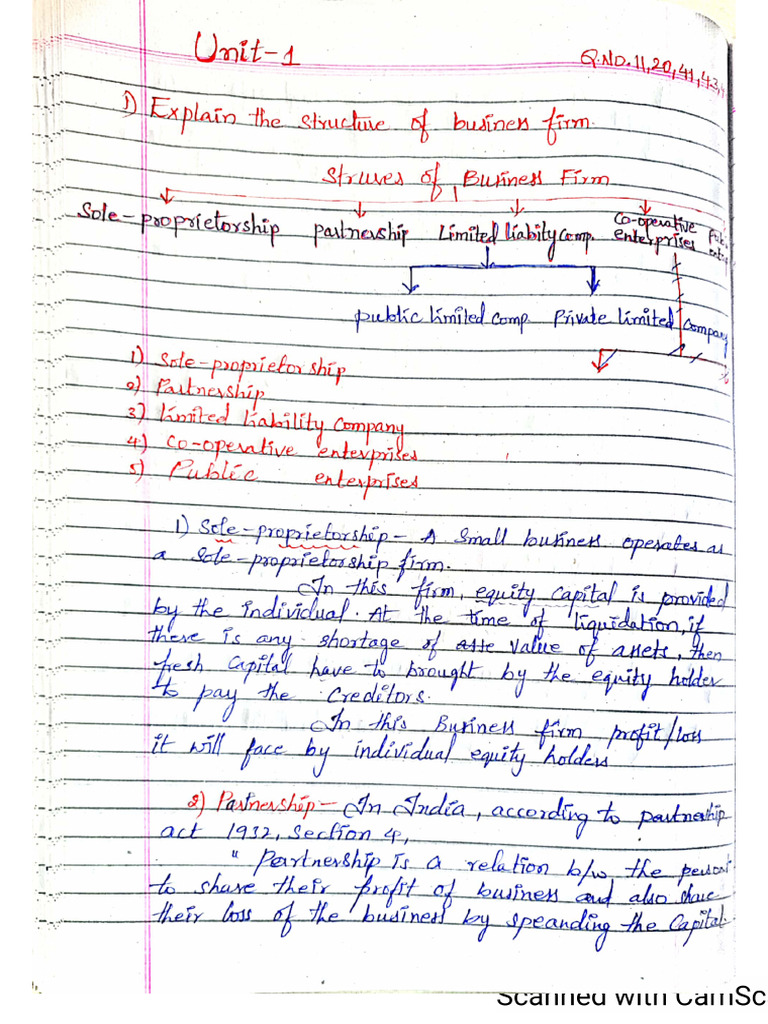 Unit-1
Q.NO.11,20,41,43,
1) Explain the structure of business firm.
Struves of Business Firm
Sole-proprietorship partnership Limited liabity Comp. Co-operative enterprises
public limited comp. Private limited Company
1) Sole-proprietorship
2) Partnership
3) Limited liability Company
4) Co-operative enterprises
5) Public enterprises
1) Sole-proprietorship - A Small business operates as
a Sole-proprietorship firm.
In this firm, equity capital is provided
by the individual. At the time of liquidation, if
there is any shortage of asse value of assets, then
fresh Capital have to brought by the equity holder
to pay the Creditors.
In this Business firm profit/loss
it will face by individual equity holders
2) Partnership - In India, according to partnership
act 1932, Section 4,
" Partnership is a relation b/w the person
to share their profit of business and also share
their loss of the business by speanding the Capital.
Scanned with CamSc